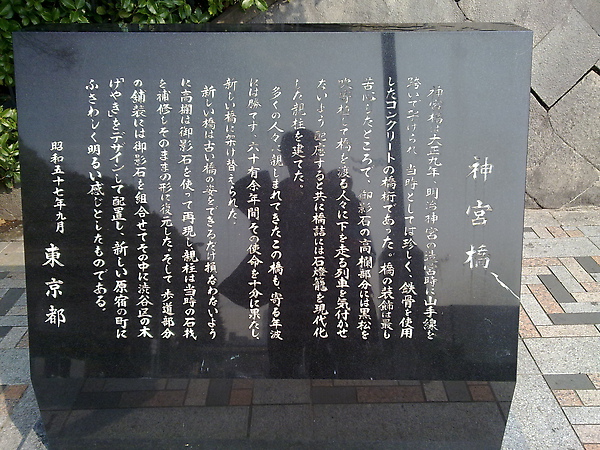 神宮橋
神宮橋は大正九年、明治神宮の造営時に山手線を
跨いで架けられ、当時としては珍しく、鉄骨を使用
したコンクリートの橋桁であった。橋の装飾は最も
苦心したところで、御影石の高欄部分には黒松を
寄植して橋を渡る人々に下を走る列車を気付かせ
ないよう配慮すると共に橋詰には石燈籠を現代化
した親柱を建てた。
多くの人々に親しまれてきたこの橋も、寄る年波
には勝てず、六十有余年間その使命を十分に果たし、
新しい橋に架け替えられた。
新しい橋は古い橋の姿をできるだけ損なわないよう
に高欄は御影石を使って再現し、親柱は当時の石材
を補修しそのままの形に復元した。そして、歩道部分
の舗装には御影石を組合せてその中に渋谷区の木
「けやき」をデザインして配置し、新しい原宿の町に
ふさわしく明るい感じとしたものである。
昭和五十七年九月
東京都